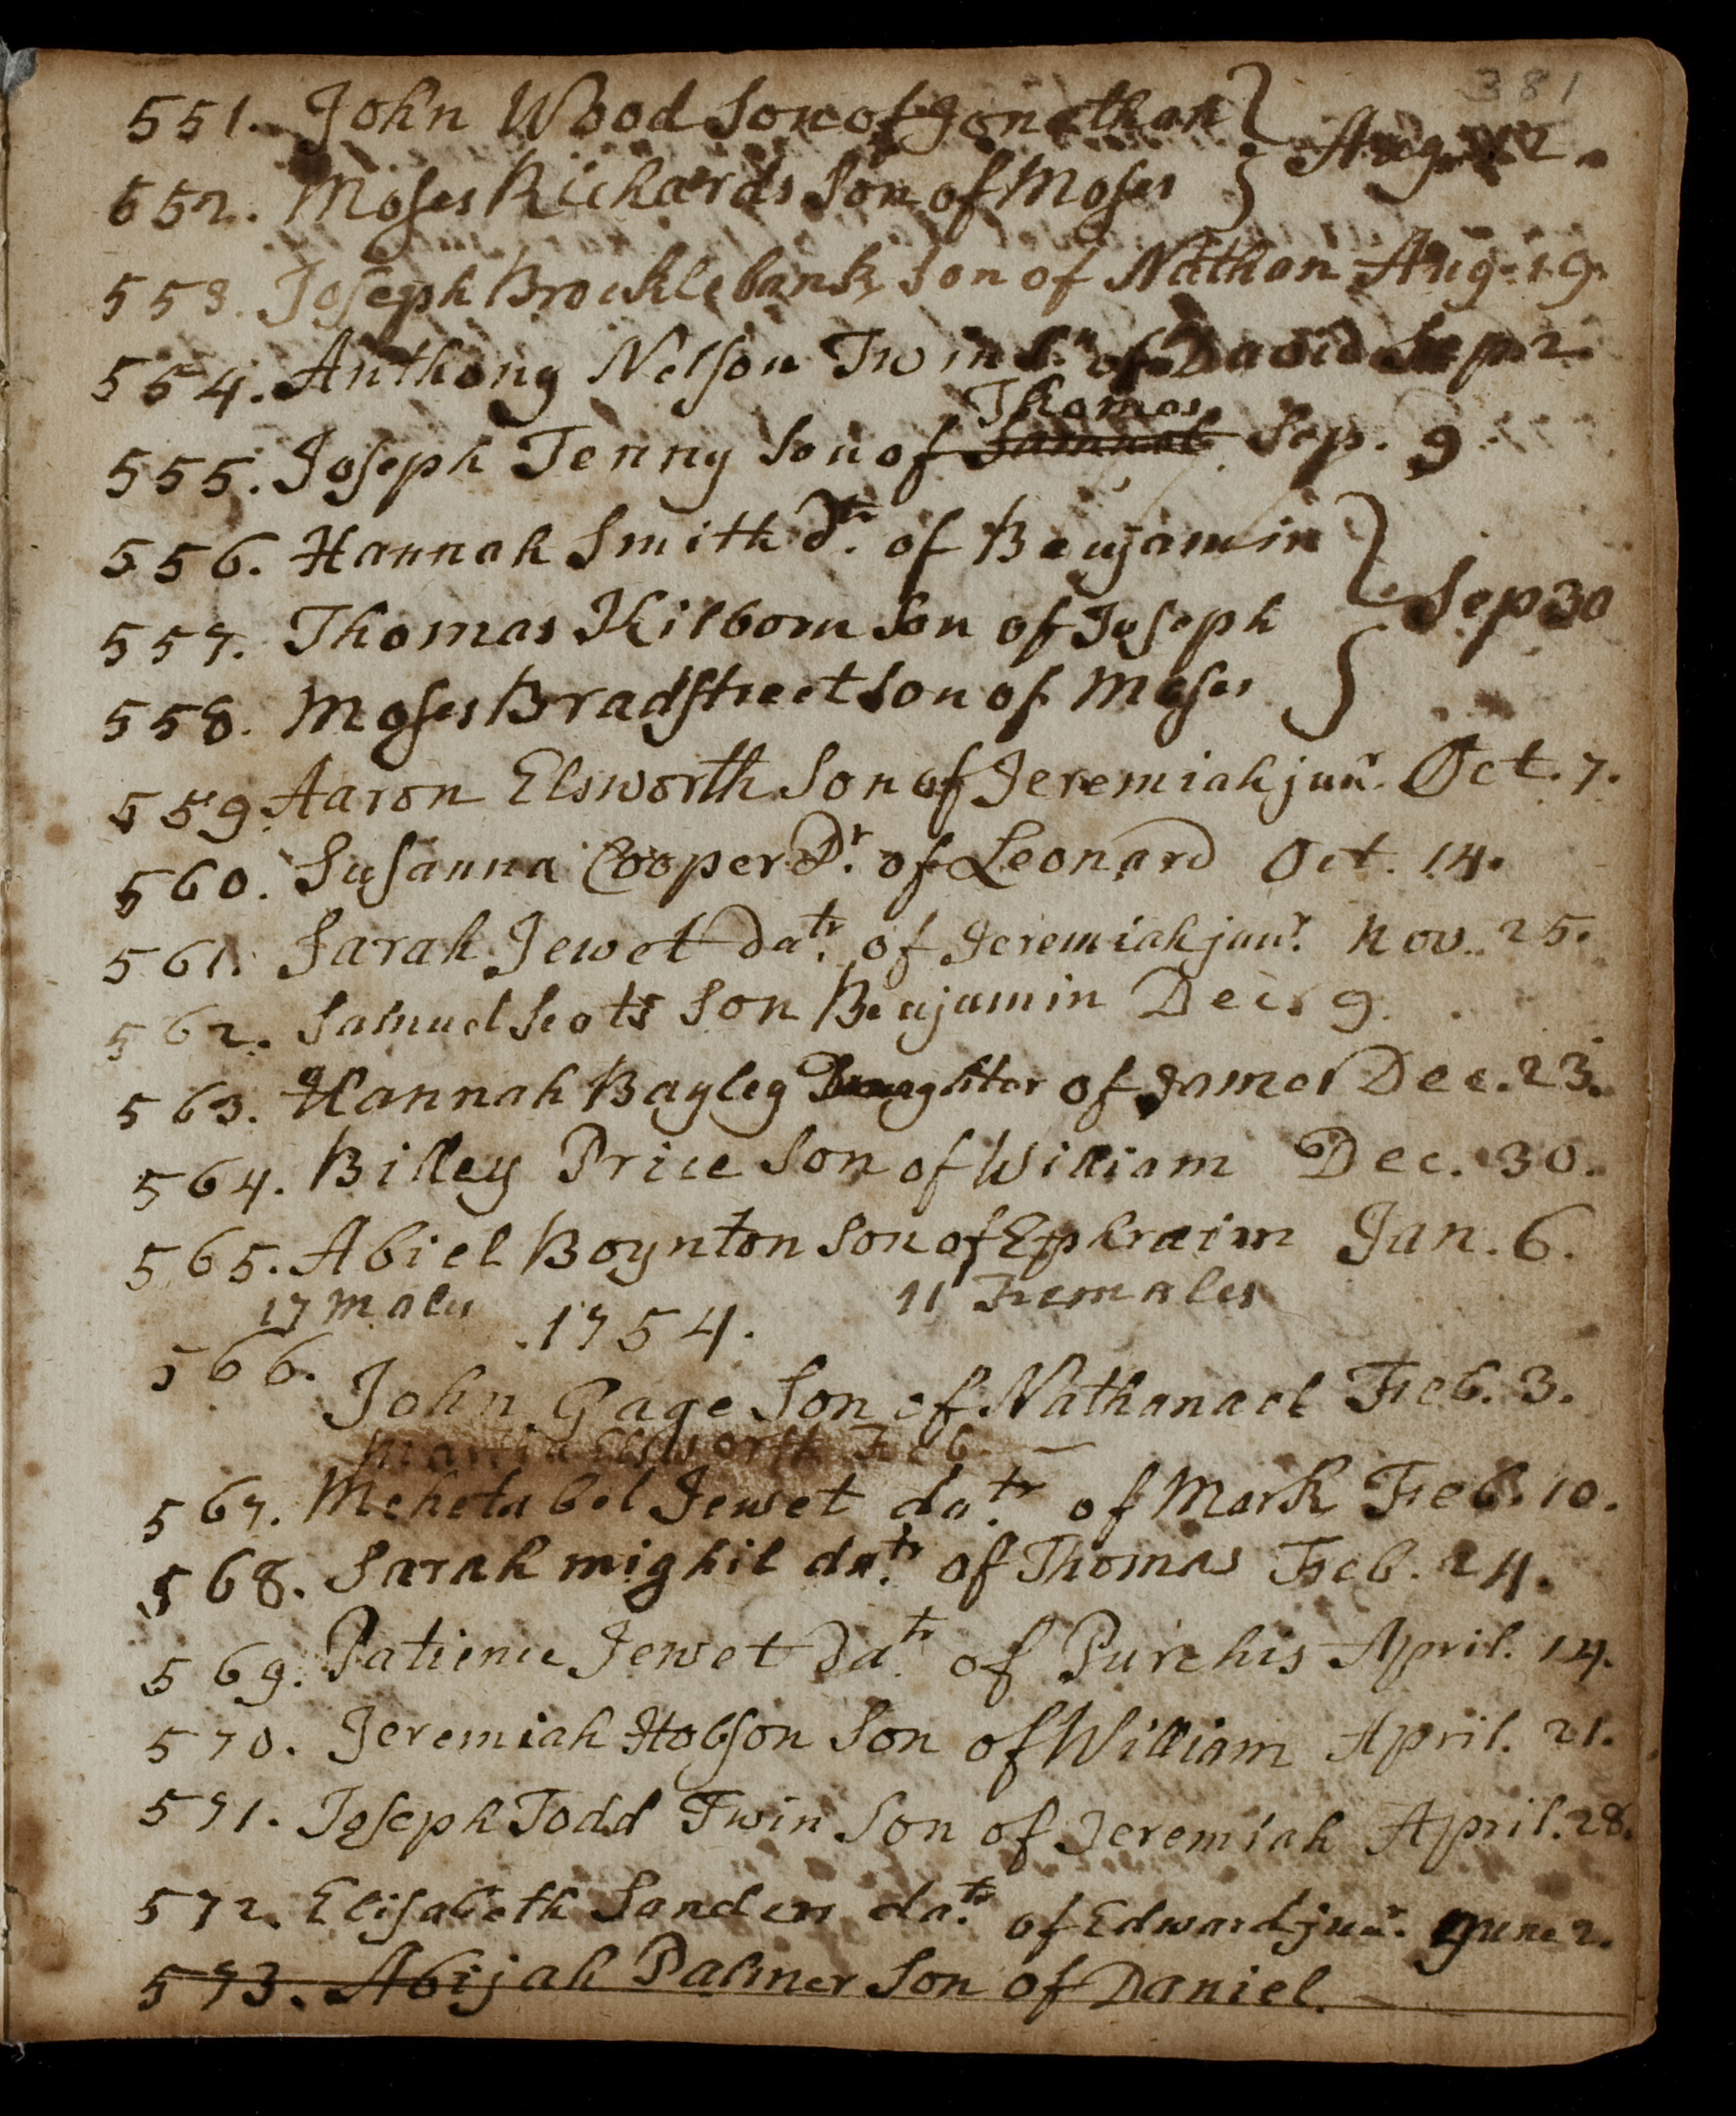 381
551. John Wood Son of Jonathan } Aug. 12.
552. Moses Richards Son of Moses }
553. Joseph Brocklebank Son of Nathan Aug. 19.
554. Anthony Nelson Twin S.n of David Sep. 2.
Thomas
555. Joseph Jenny Son of Samuel Sep. 9
556. Hannah Smith Dtr. of Benjamin }
557. Thomas Kilborn Son of Joseph } Sep 30
558. Moses Bradstreet Son of Moses }
559. Aaron Elsworth Son of Jeremiah junr. Oct. 7.
560. Susanna Cooper Dr. of Leonard Oct. 14.
561. Sarah Jewet Datr. of Jeremiah junr. Nov. 25.
562. Samuel Scots Son Benjamin Dec. 9.
563. Hannah Bayley Daughter of James Dec. 23.
564. Billey Price Son of William Dec. 30.
565. Abiel Boynton Son of Ephraim Jan. 6.
17 Males 11 Females
1754.
566. John Gage Son of Nathanael Feb. 3.
Elsworth Feb —
567. Mehetabel Jewet datr. of Mark Feb. 10.
568. Sarah mighil datr. of Thomas Feb. 24.
569. Patience Jewet Datr. of Purchis April. 14.
570. Jeremiah Hobson Son of William April. 21.
571. Joseph Todd Twin Son of Jeremiah April. 28.
572. Elisabeth Sanders datr. of Edward junr. June 2.
573. Abijah Palmer Son of Daniel.